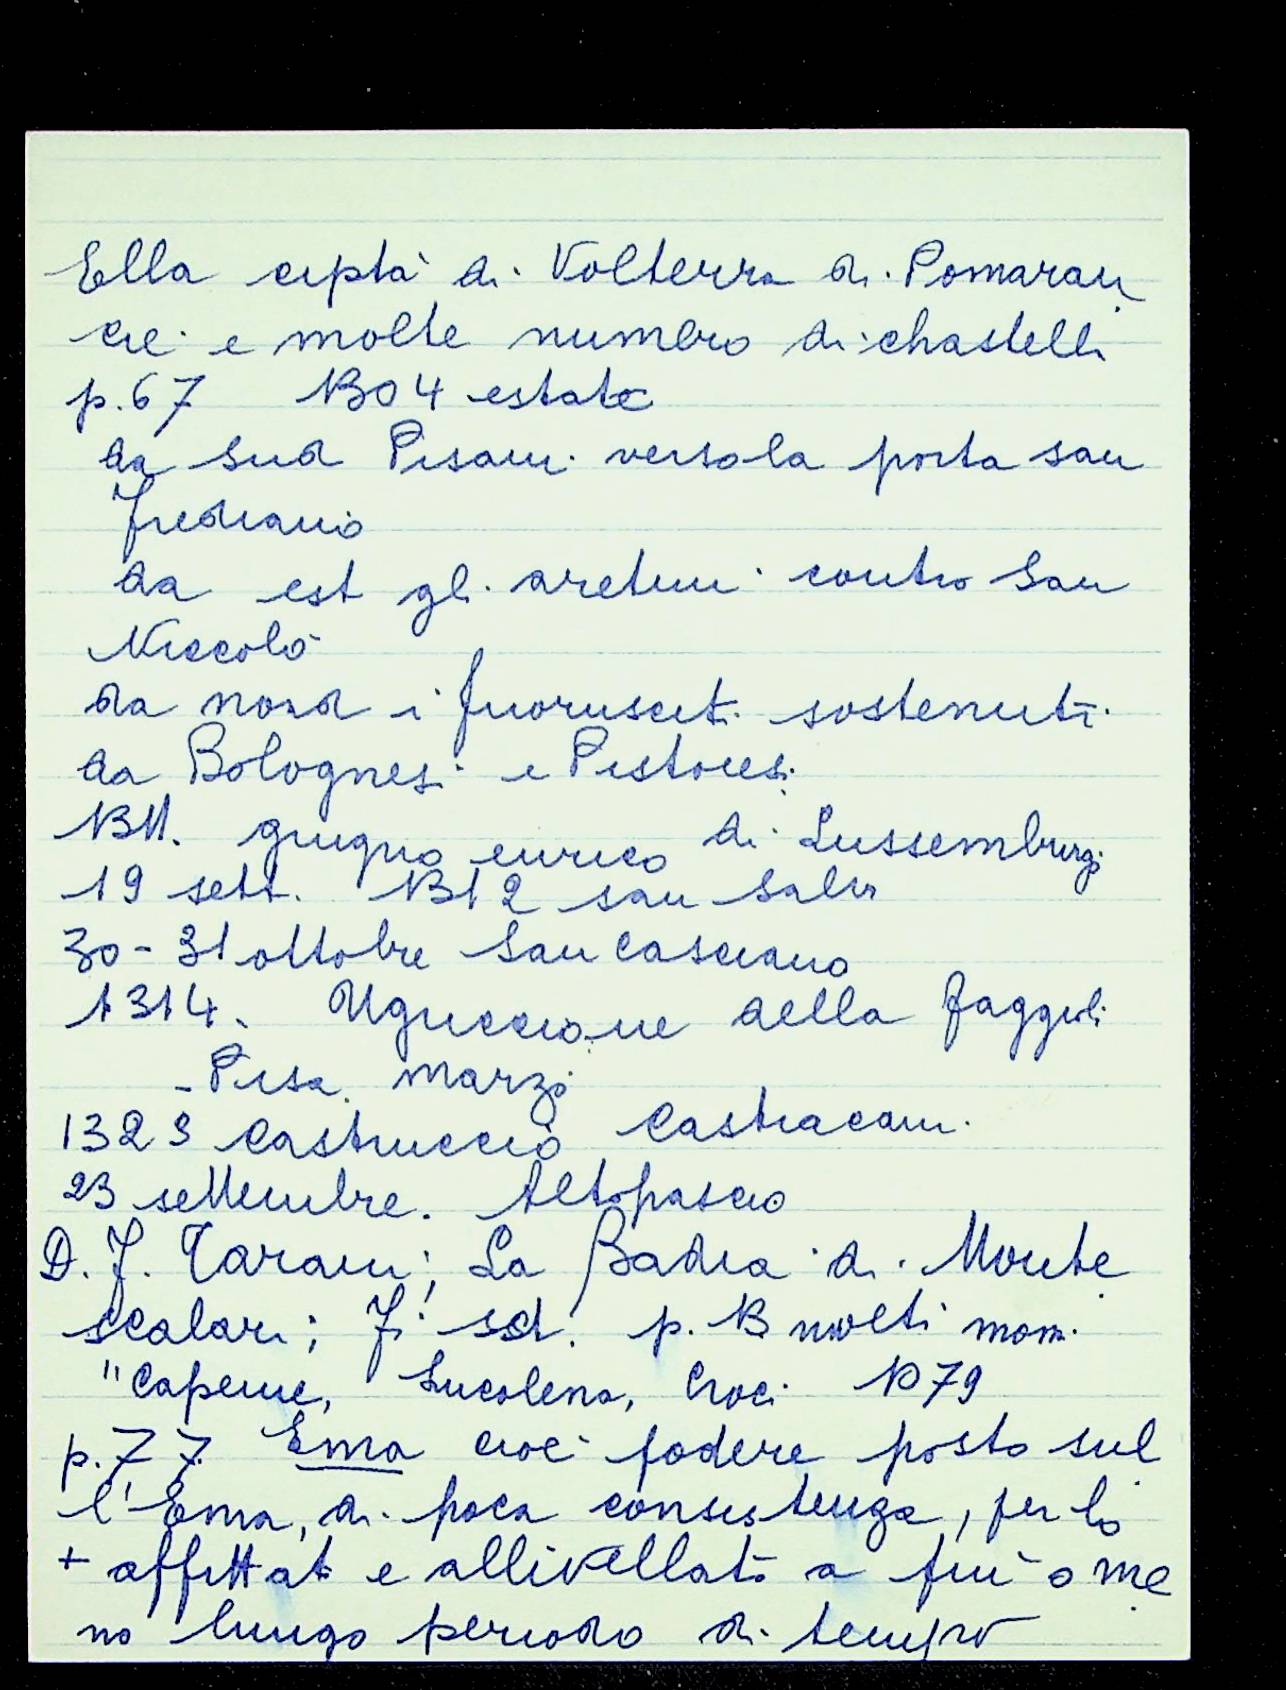 Ella ciptà di Volterra di Pomaran
cie e molte numero di chastelli
p. 67 1304 estate
da sud Pisani verso la porta san
frediano
da est gli aretini contro San
Niccolò
da nord i fuorusciti sostenuti
da Bolognesi e Pistoiesi
1311. giugno enrico di Lussemburgo
19 sett. 1312 san Salvi
30 - 31 ottobre San Casciano
1314. Uguccione della faggioli
- Pisa. marzo
1323 Castruccio Castracani
23 settembre. Altopascio
D. F. Tarani; La Badia di Monte
scalari; p. 13 molti mom.
"Caperne, Lucolena, Croci 1079
p. 77. Ema cioè podere posto sul
l'Ema, di poca consistenza, per lo
+ affittato e allivellato a più o me
no lungo periodo di tempo